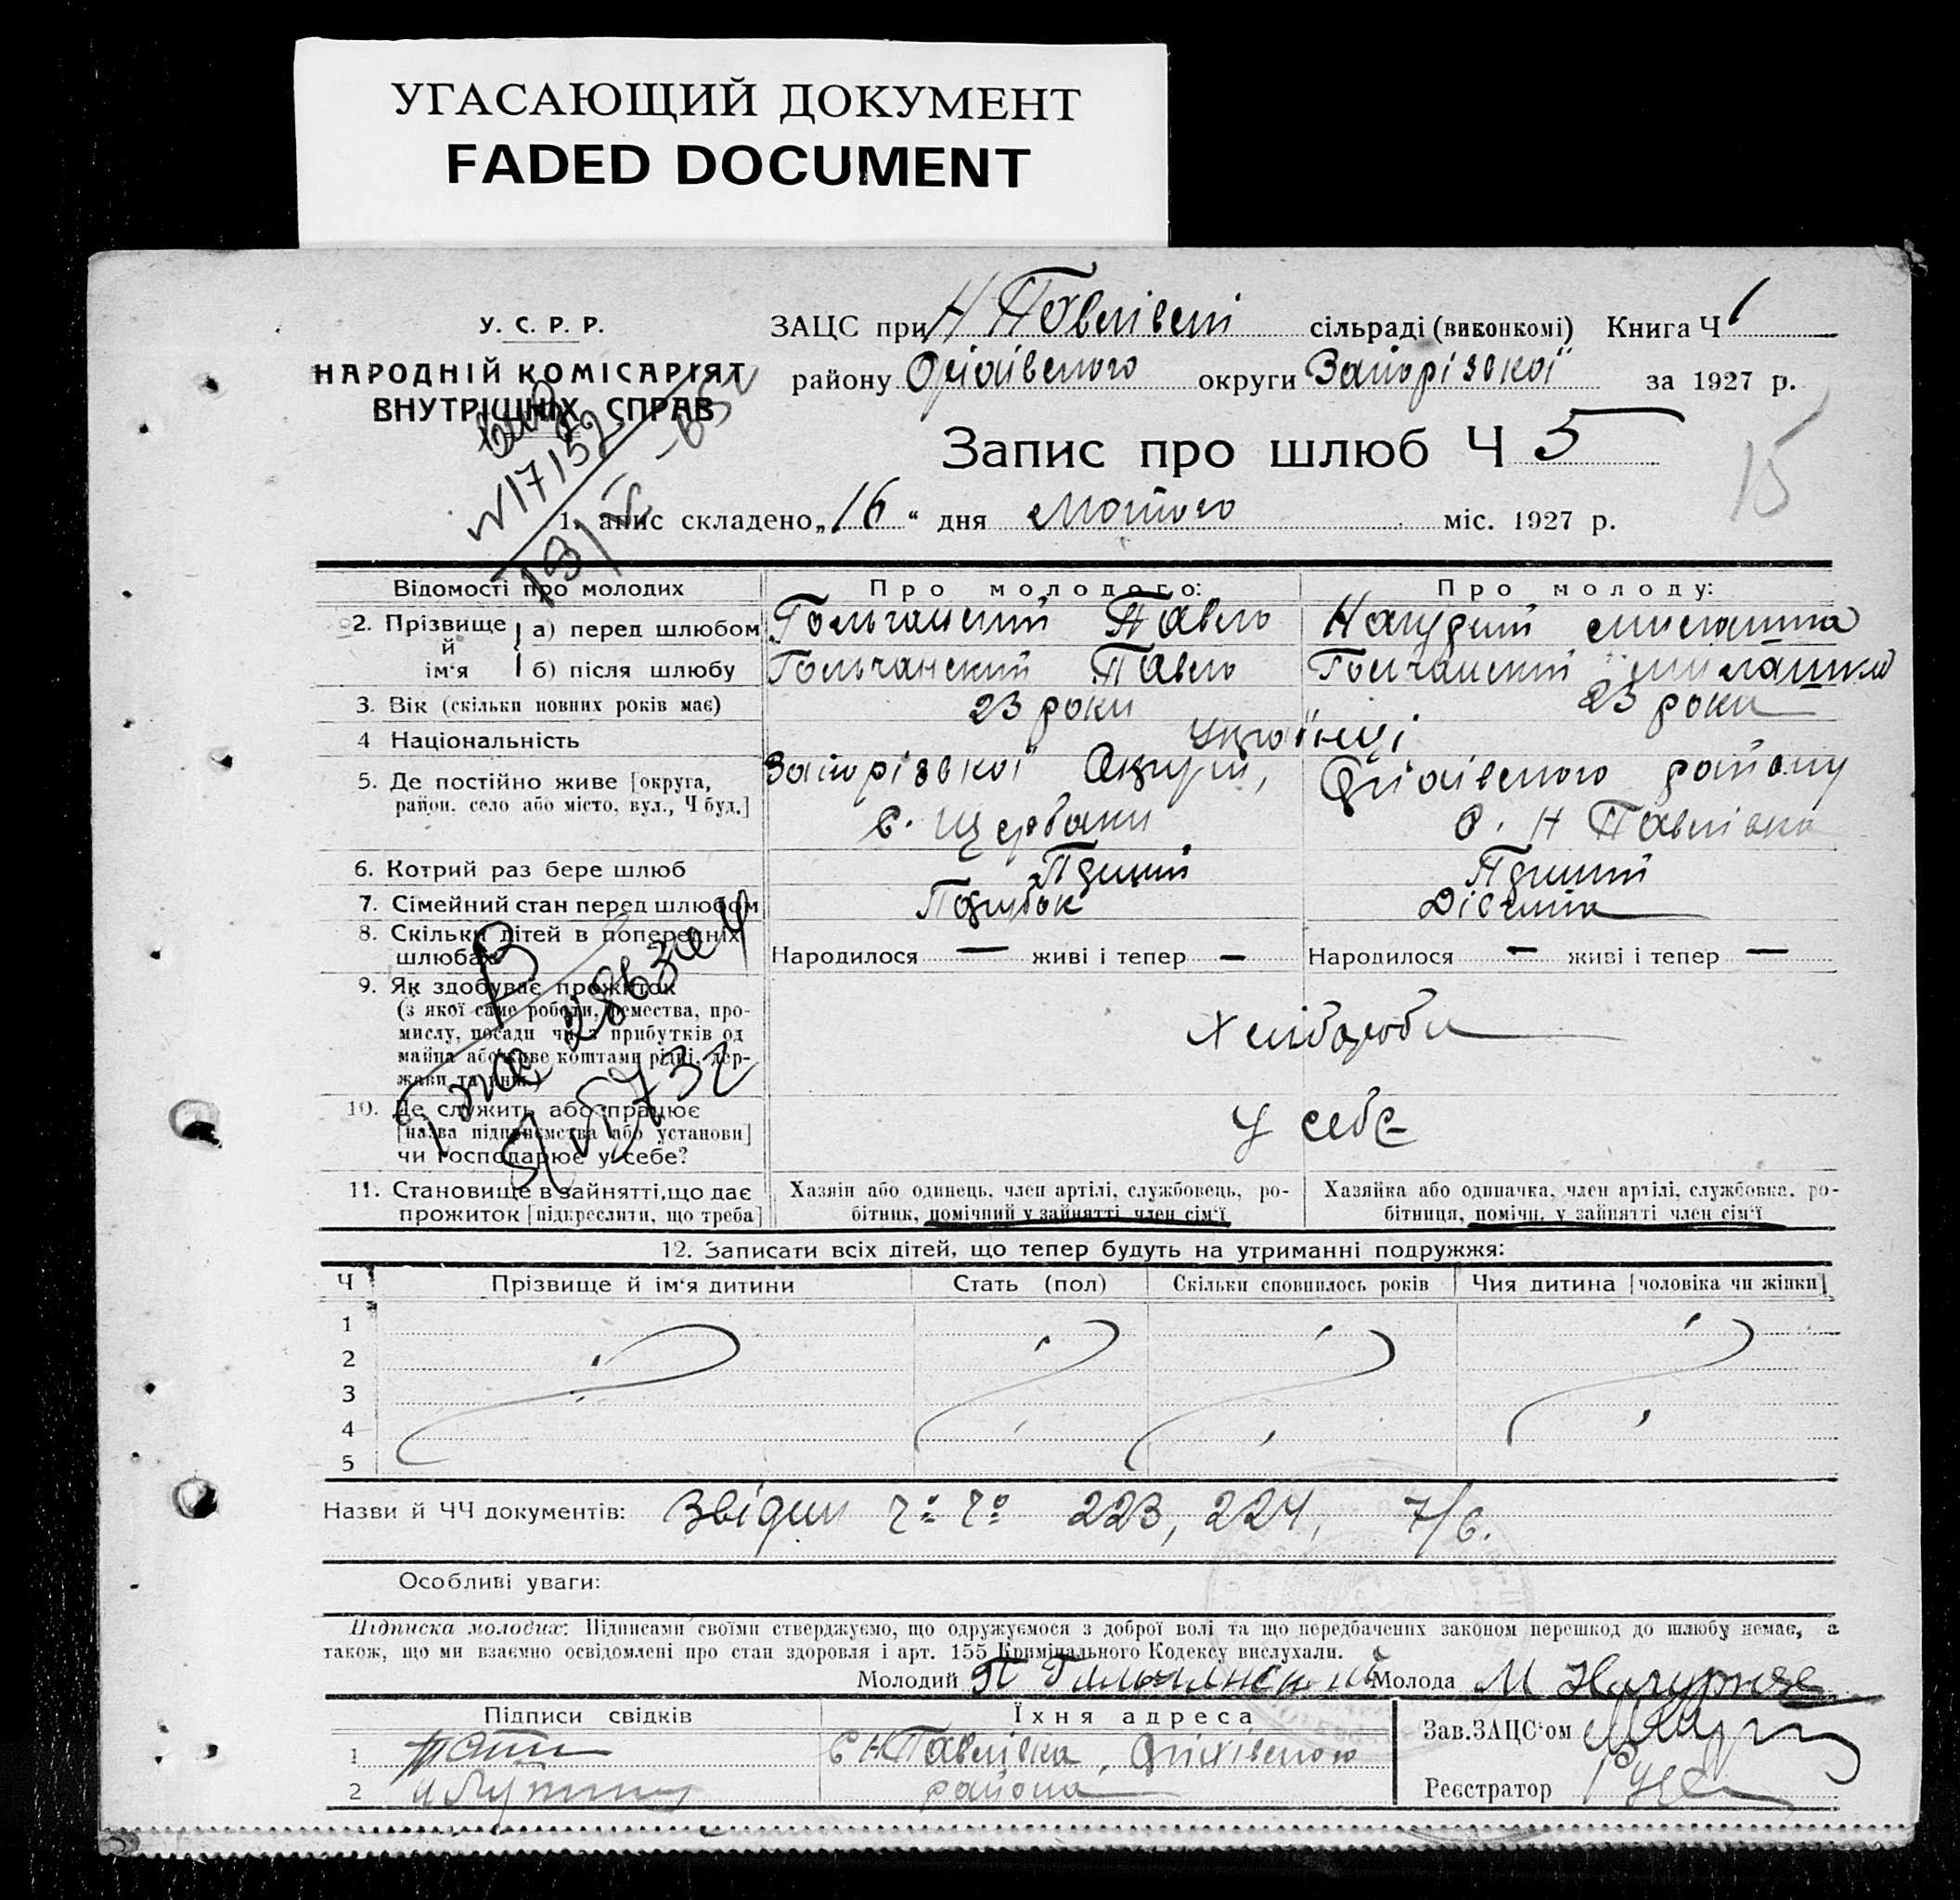 УГАСАЮЩИЙ ДОКУМЕНТ
FADED DOCUMENT
У. С. Р. Р.
НАРОДНІЙ КОМІСАРІЯТ
ВНУТРІШНІХ СПРАВ
ЗАЦС при Н Павлівські сільраді (виконкомі) Книга Ч 1
району Оріхівського округи Запорізької за 1927 р.
Запис про шлюб Ч 5
15
1. апис складено „16“ дня Лютого міс. 1927 р.
№ 17152
Відомості про молодих
Про молодого:
Про молоду:
2. Прізвище й ім‘я
а) перед шлюбом
Гольчанский Павло
б) після шлюбу
Гольчанский Павло
Гольчанский
3. Вік (скільки повних років має)
23 роки
23 роки
4 Національність
Українці
5. Де постійно живе [округа,
район. село або місто, вул., Ч буд.]
Запорізької Округи, Оріхівського району
с. Щербаки
с. Н Павлівка
6. Котрий раз бере шлюб
Перший
Перший
7. Сімейний стан перед шлюбом
Парубок
Дівчина
8. Скільки дітей в попередніх
шлюбах
Народилося — живі і тепер —
Народилося — живі і тепер —
9. Як здобуває прожиток
(з якої саме роботи, ремества, про-
мислу, посади чи з прибутків од
майна або живе коштами рідні, дер-
жави та инш.)
Хлібороби
10. Де служить або працює
[назва підприємства або установи]
чи господарює у себе?
У себе
11. Становище в зайнятті, що дає
прожиток [підкреслити, що треба]
Хазяін або одинець, член артілі, службовець, ро-
бітник, помічний у зайнятті член сім‘ї
Хазяйка або одиначка, член артілі, службовка, ро-
бітниця, помічн. у зайнятті член сім‘ї
12. Записати всіх дітей, що тепер будуть на утриманні подружжя:
Ч
Прізвище й ім‘я дитини
Стать (пол)
Скільки сповнилось років
Чия дитина [чоловіка чи жінки]
1
2
3
4
5
Назви й ЧЧ документів: 223, 224, 7/6.
Особливі уваги:
Підписка молодих: Підписами своїми стверджуємо, що одружуємося з доброї волі та що передбачених законом перешкод до шлюбу немає, а
також, що ми взаємно освідомлені про стан здоровля і арт. 155 Кримінального Кодексу вислухали.
Молодий П Гольчанский Молода М
Підписи свідків
Їхня адреса
Зав. ЗАЦС‘ом
1
с Н Павлівка, Оріхівського
2
района
Реєстратор